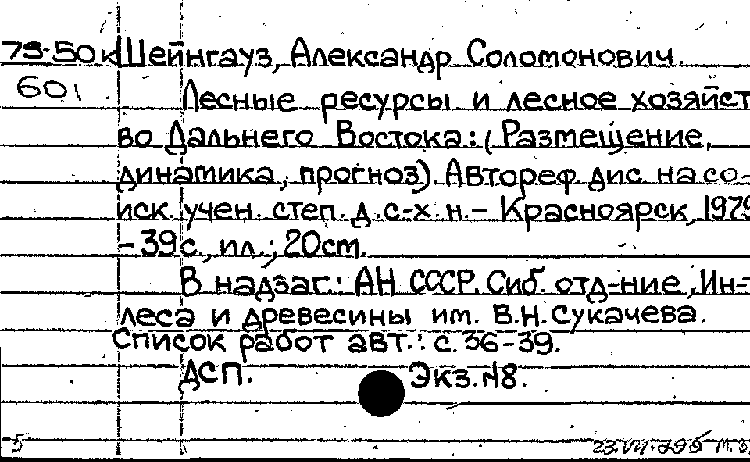 79-50к Шейнгауз, Александр Соломонович.
601
Лесные ресурсы и лесное хозяйст
во Дальнего Востока: (Размещение,
динамика, прогноз). Автореф. дис. на со-
иск. учен. степ. д. с.-х. н. - Красноярск, 1979
- 39 с., ил.; 20 cm.
В надзаг.: АН СССР. Сиб. отд-ние, Ин-
леса и древесины им. В.Н. Сукачева.
Список работ авт.: с. 36-39.
ДСП. Экз. №8.
5